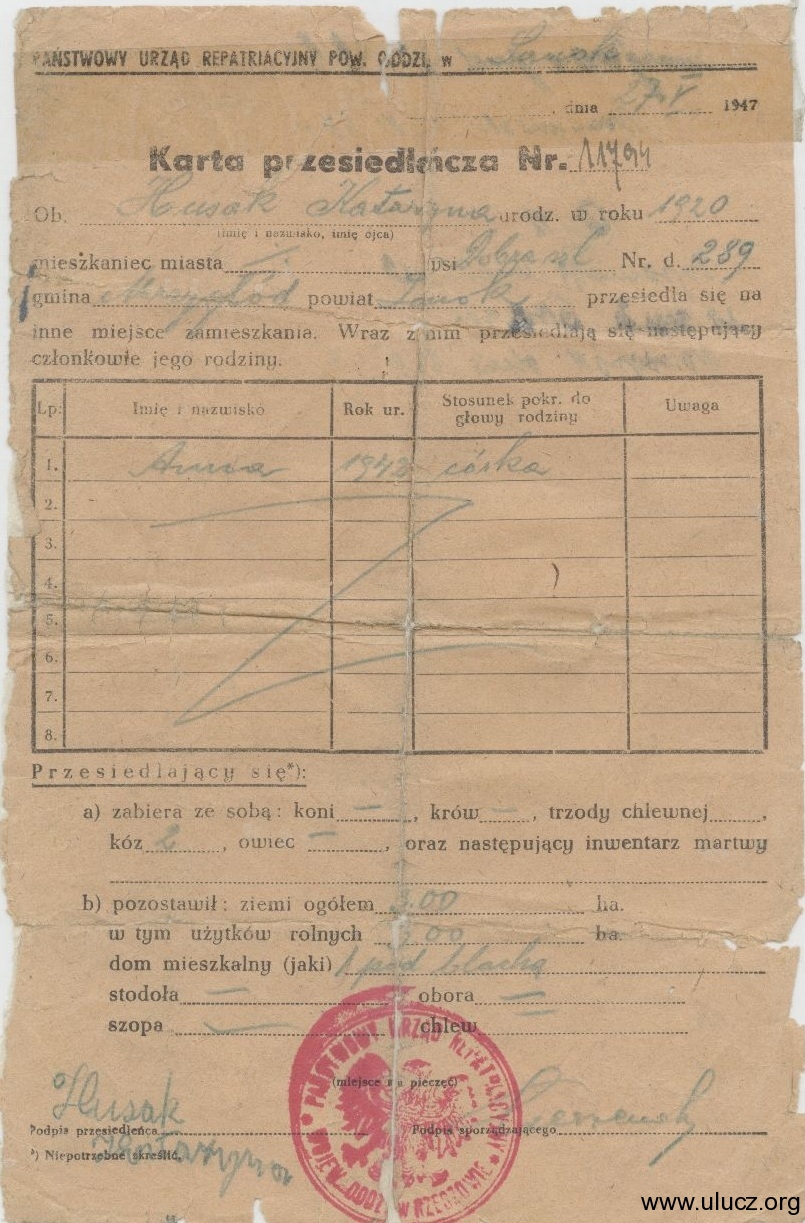 PAŃSTWOWY URZĄD REPATRIACYJNY POW. ODDZ. w
dnia 27 V 1947
Karta przesiedleńcza Nr. 11794
Ob. Husak Katarzyna urodz. w roku 1920
(imię i nazwisko, imię ojca)
mieszkaniec miasta wsi Dobra szl Nr. d. 289
gmina Mrzygłód powiat Sanok przesiedla się na
inne miejsce zamieszkania. Wraz z nim przesiedlają się następujący
członkowie jego rodziny.
Lp. Imię i nazwisko Rok ur. Stosunek pokr. do głowy rodziny Uwaga
1. Anna 1942 córka
2.
3.
4.
5.
6.
7.
8.
Przesiedlający się*):
a) zabiera ze sobą: koni —, krów —, trzody chlewnej ,
kóz 2, owiec —, oraz następujący inwentarz martwy
b) pozostawił: ziemi ogółem 3.00 ha.
w tym użytków rolnych 3 00 ha.
dom mieszkalny (jaki) 1 pod blachą
stodoła — obora —
szopa — chlew
PAŃSTWOWY URZĄD REPATRIACYJNY WOJEW. ODDZ. W RZESZOWIE
(miejsce na pieczęć)
Husak
Podpis przesiedleńca Podpis sporządzającego
Katarzyna
*) Niepotrzebne skreślić.
www.ulucz.org